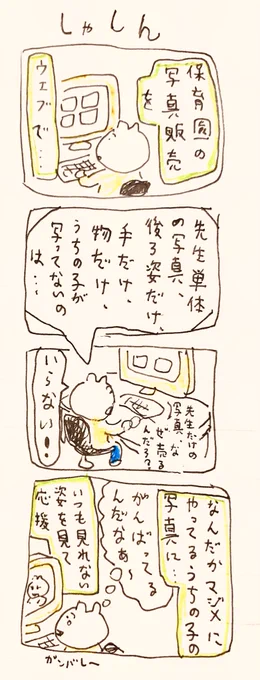 しゃしん
保育園の
写真販売
を
ウェブで…
先生単体
の写真、
後ろ姿だけ、
手だけ、
物だけ、
うちの子が
写ってないの
は…
先生だけの
写真、な
ぜ売る
んだろ?
いらない!
なんだかマジメに
やってるうちの子の
写真に…
がんばってる
んだなあ〜
いつも見れない
姿を見て
応援
ガンバレ〜